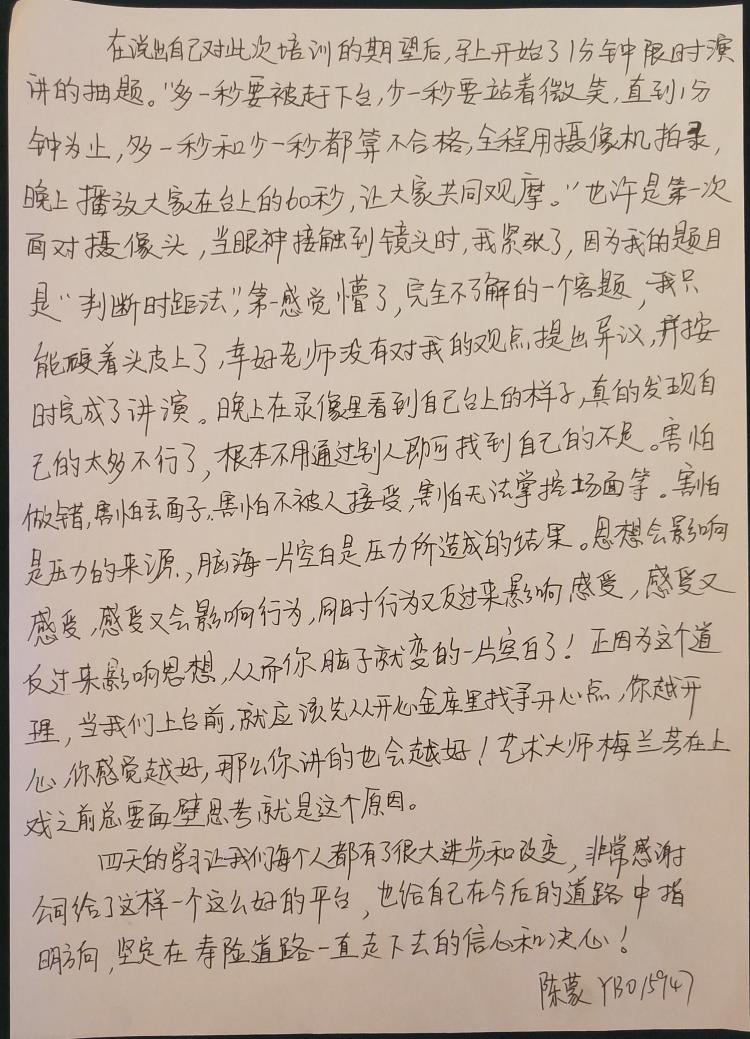 在说出自己对此次培训的期望后,马上开始了1分钟限时演
讲的抽题。“多一秒要被赶下台,少一秒要站着微笑,直到1分
钟为止,多一秒和少一秒都算不合格,全程用摄像机拍录,
晚上播放大家在台上的60秒,让大家共同观摩。”也许是第一次
面对摄像头,当眼神接触到镜头时,我紧张了,因为我的题目
是“判断时距法”,第一感觉懵了,完全不了解的一个客题,我只
能硬着头皮上了,幸好老师没有对我的观点提出异议,并按
时完成了讲演。晚上在录像里看到自己台上的样子,真的发现自
己的太多不行了,根本不用通过别人即可找到自己的不足。害怕
做错,害怕丢面子,害怕不被人接受,害怕无法掌控场面等。害怕
是压力的来源,脑海一片空白是压力所造成的结果。思想会影响
感受,感受又会影响行为,同时行为又反过来影响感受,感受又
反过来影响思想,从而你脑子就变的一片空白了!正因为这个道
理,当我们上台前,就应该先从开心金库里找寻开心点,你越开
心,你感觉越好,那么你讲的也会越好!艺术大师梅兰芳在上
戏之前总要面壁思考,就是这个原因。
四天的学习让我们每个人都有了很大进步和改变,非常感谢
公司给了这样一个这么好的平台,也给自己在今后的道路中指
明方向,坚定在寿险道路一直走下去的信心和决心!
陈蒙 YB015947